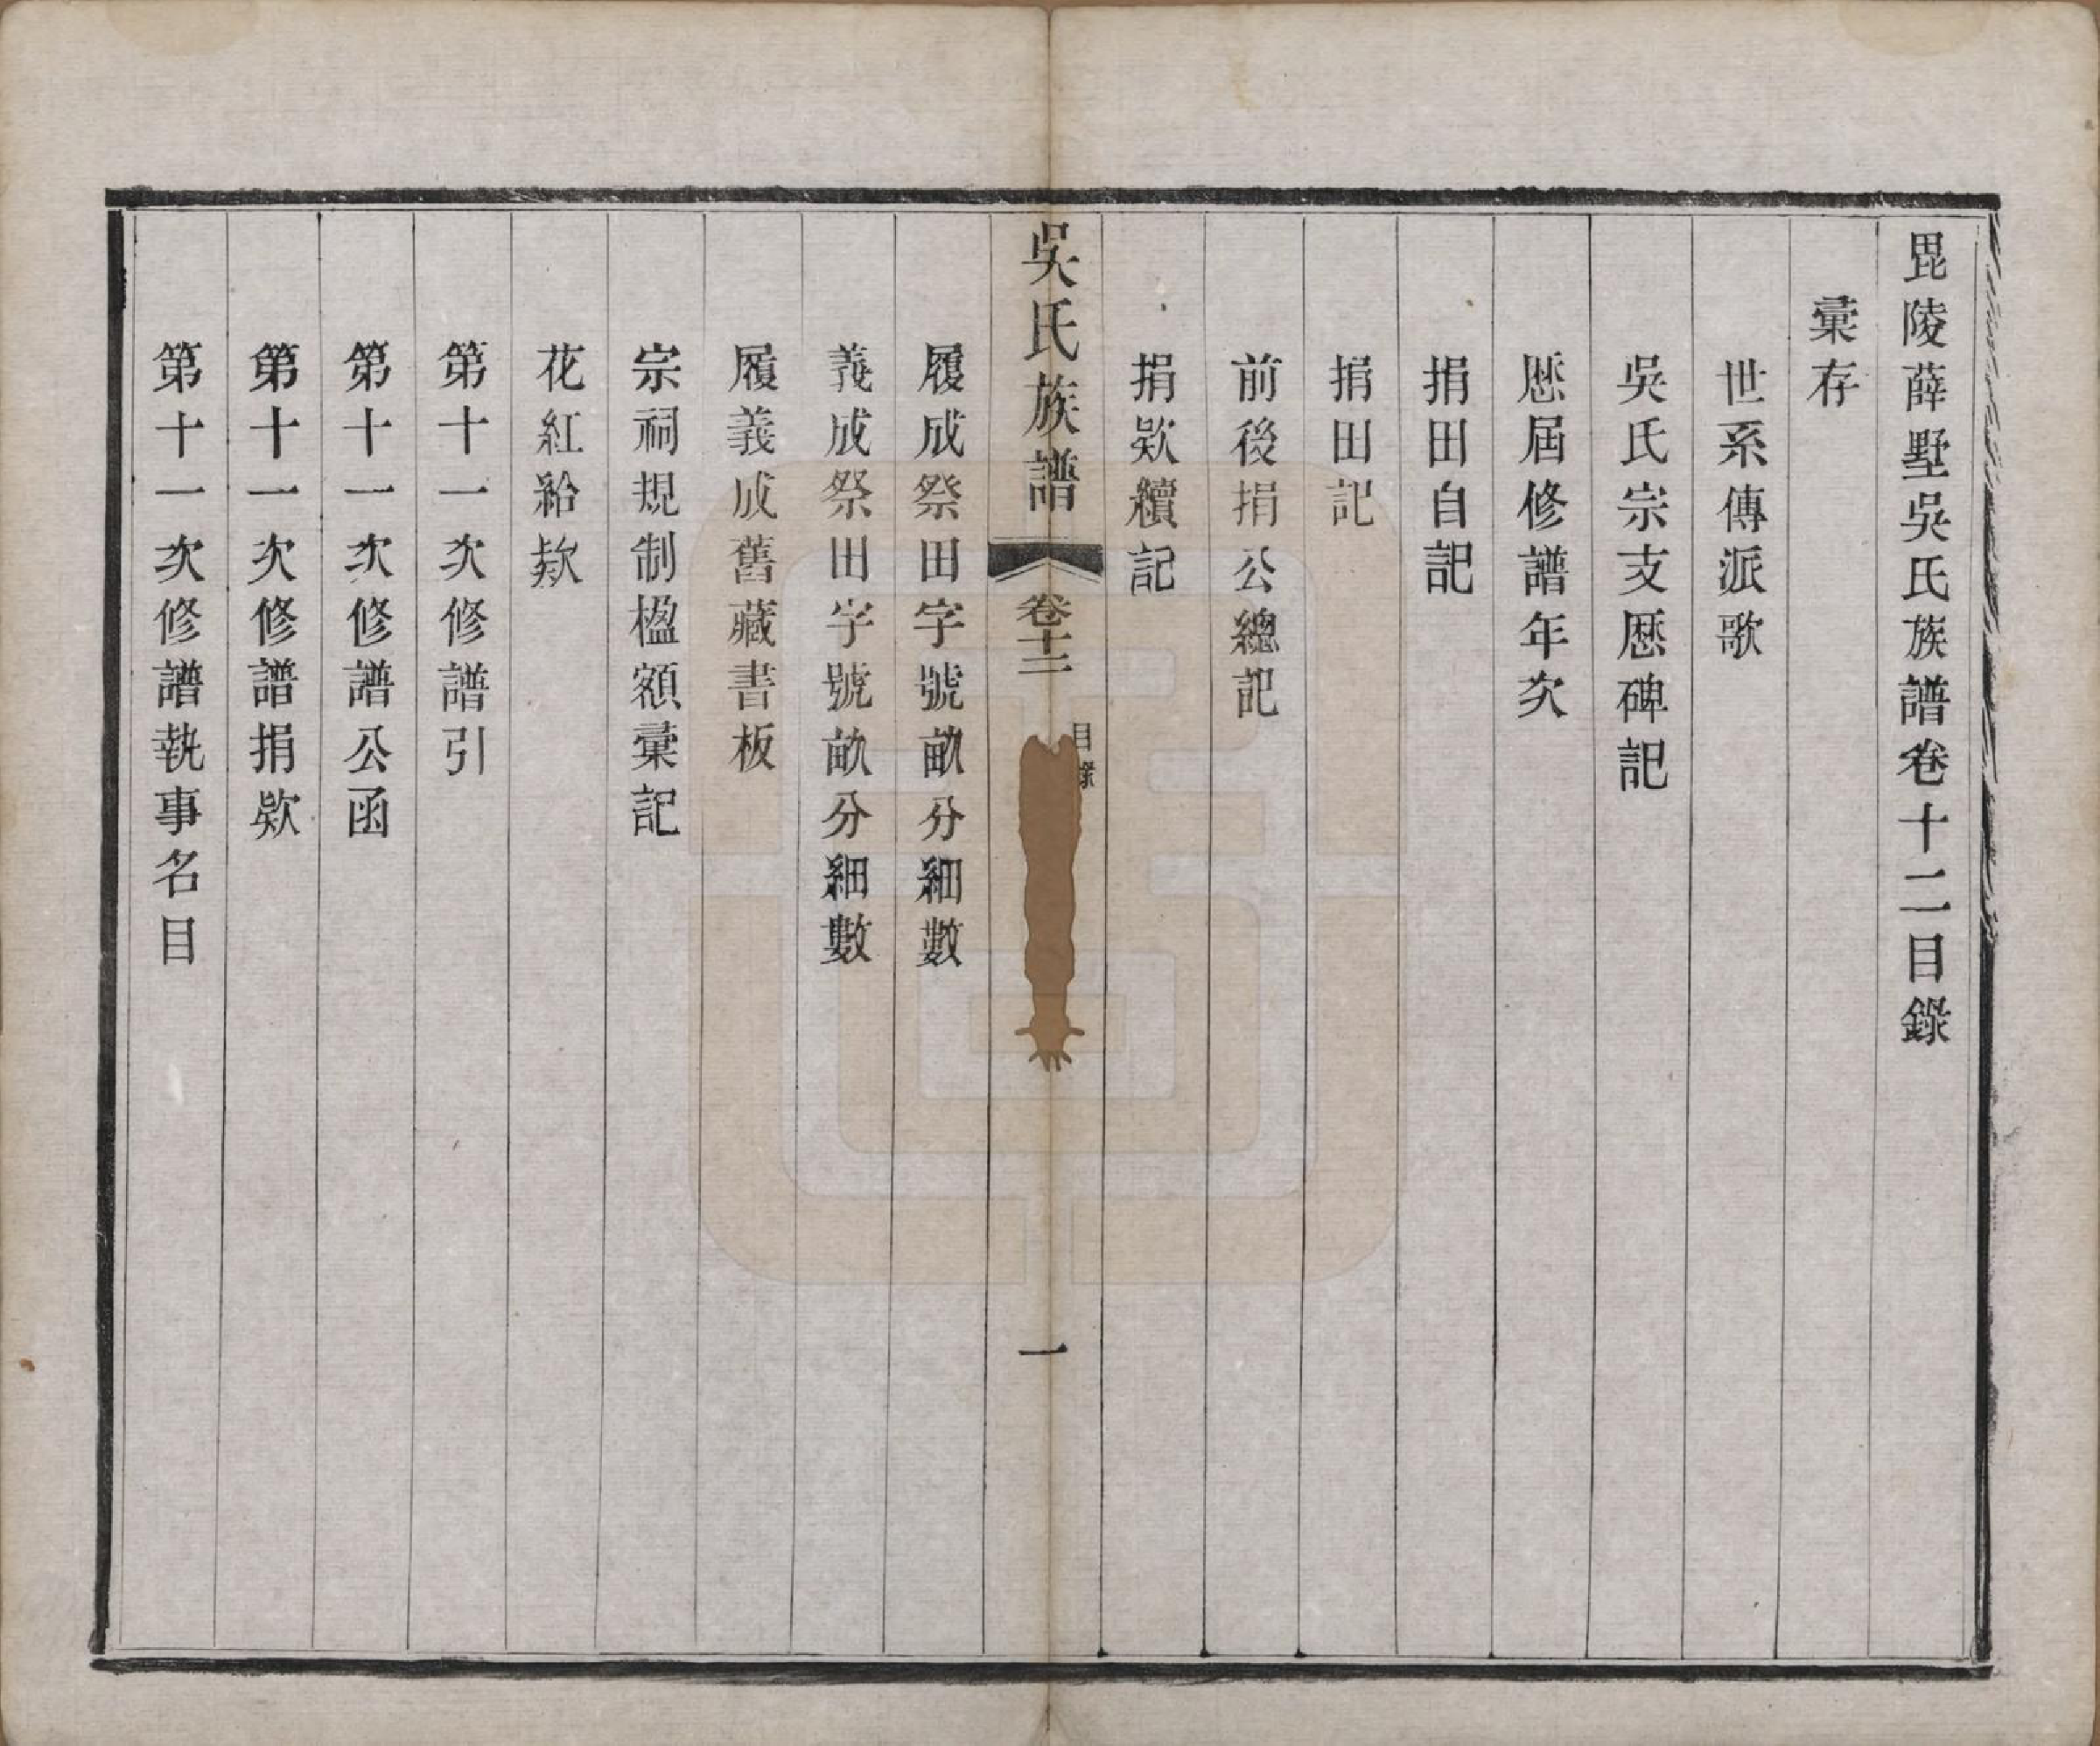 毘陵薛墅吳氏族譜卷十二目錄
彙存
世系傳派歌
吳氏宗支歷碑記
歷屆修譜年次
捐田自記
捐田記
前後捐公總記
捐欵續記
吳氏族譜 卷十二 目錄 一
履成祭田字號畝分細數
義成祭田字號畝分細數
履義成舊藏書板
宗祠規制楹額彙記
花紅給欵
第十一次修譜引
第十一次修譜公函
第十一次修譜捐欵
第十一次修譜執事名目